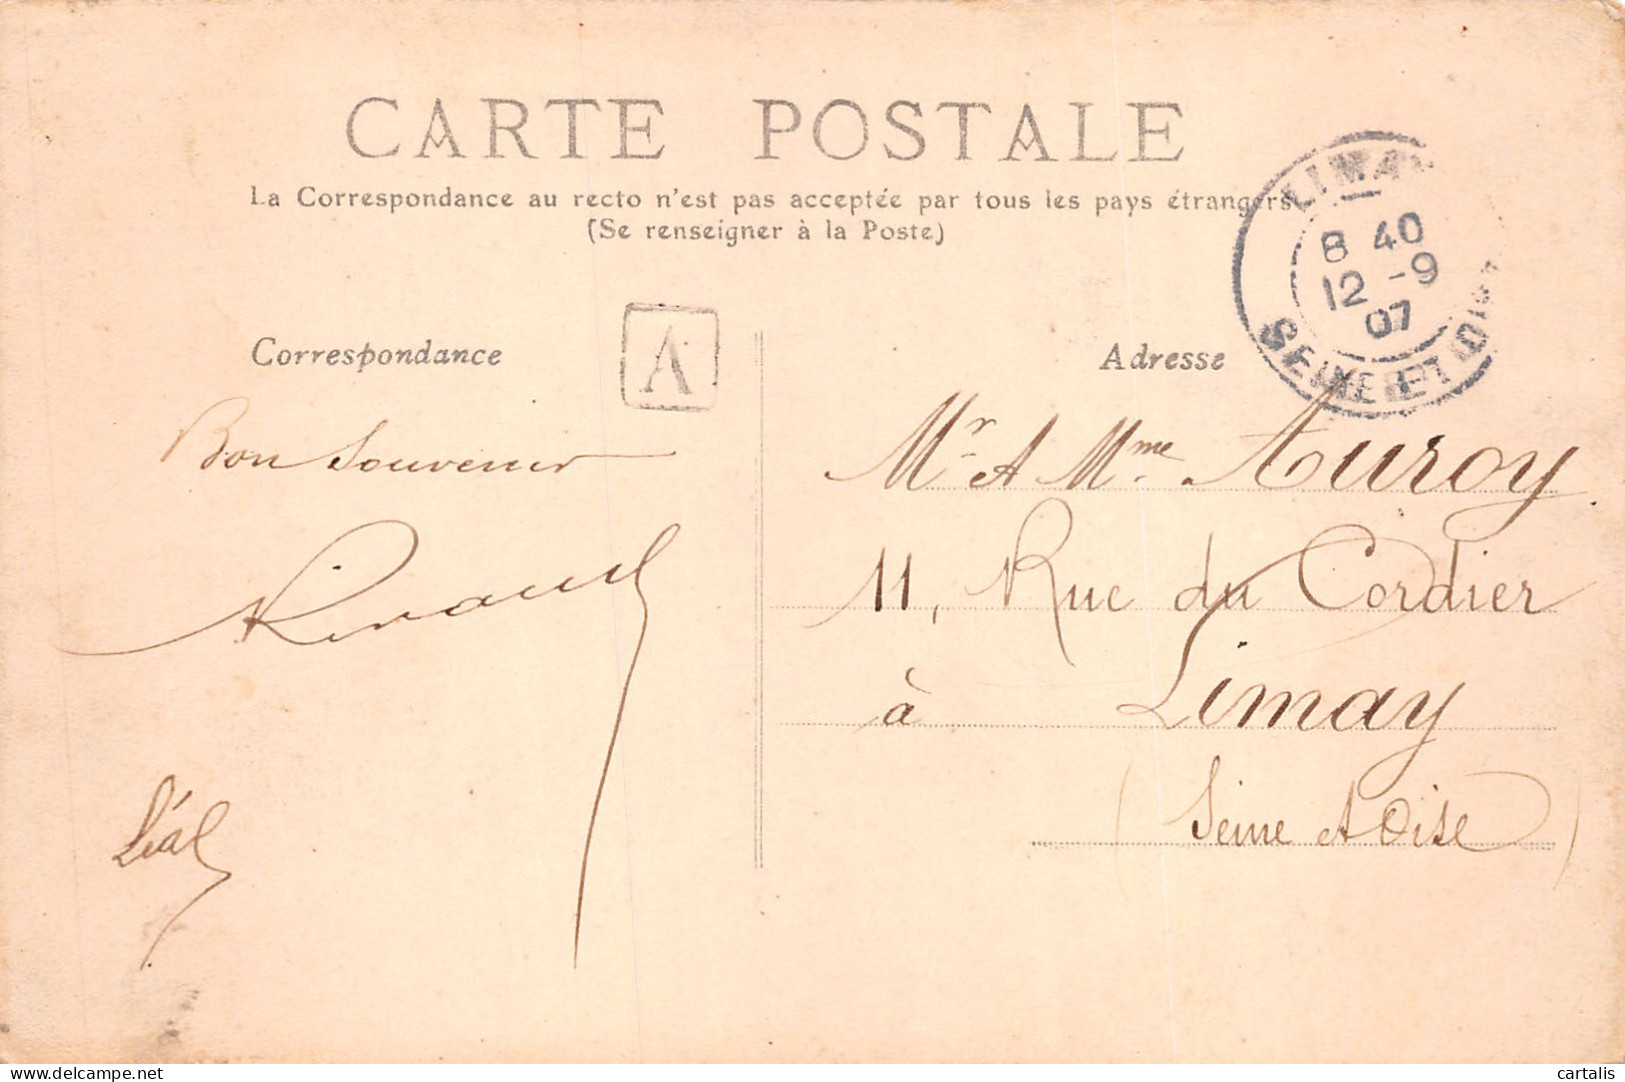 CARTE POSTALE
La Correspondance au recto n'est pas acceptée par tous les pays étrangers
(Se renseigner à la Poste)
LIMAY
8 40
12 -9
07
SEINE ET OISE
Correspondance
A
Adresse
Bon Souvenir
Mr et Mme Auroy
11, Rue du Cordier
à Limay
(Seine et Oise)
delcampe.net
cartalis